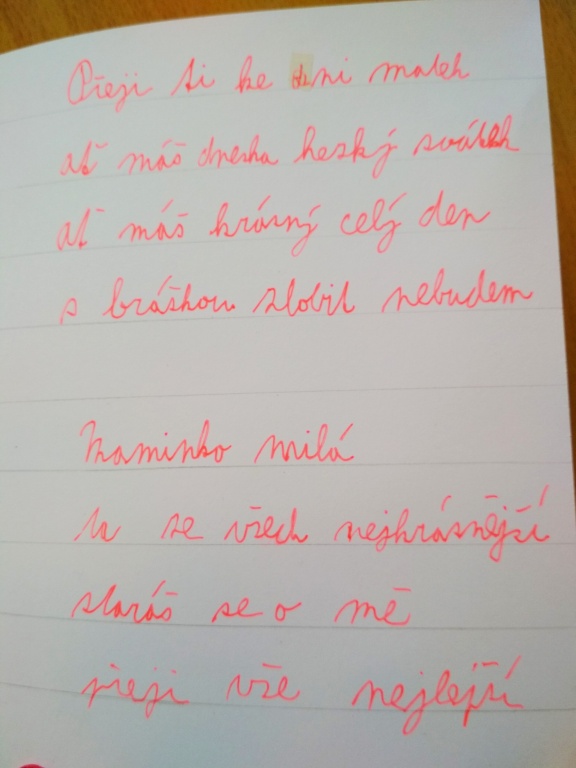 Přeji ti ke dni matek
ať máš dneska hezký svátek
ať máš krásný celý den
s bráškou zlobit nebudem
Maminko milá
ty se všech nejkrásnější
staráš se o mě
přeji vše nejlepší